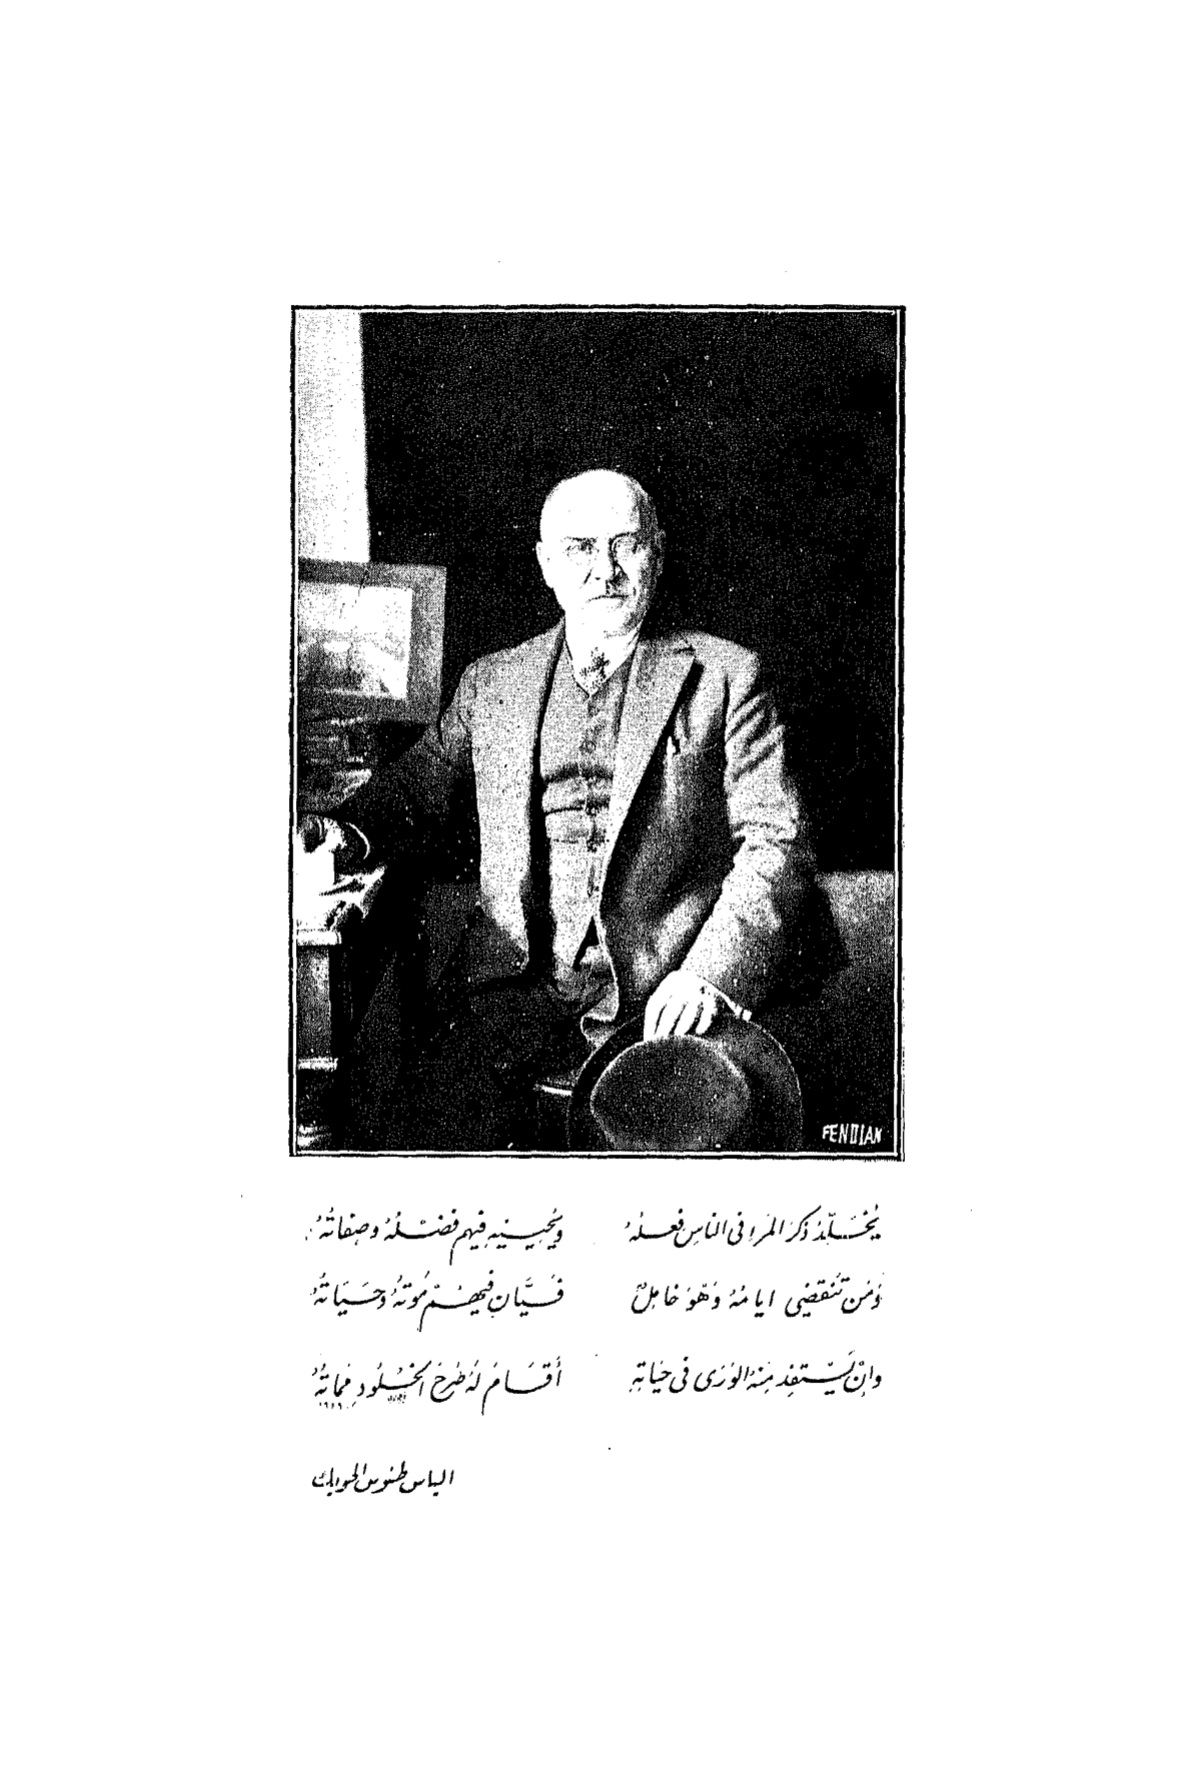 FENDIAN
يُخَلِّدُ ذكرَ المرءِ فى الناسِ فعلُهُ ويُحيِيهِ فيهم فضْلُهُ وصِفاتُهُ
وَمَن تنقضِى ايامُهُ وَهْوَ خامِلٌ فَسِيَّانِ فيهِمْ مَوْتُهُ وَحَيَاتُهُ
وانْ يَسْتفِدْ مِنْهُ الوَرَى فى حَيَاتِهِ أقَامَ لَهُ صَرْحَ الخُلُودِ مماتُهُ
الياس طنوس الحويك